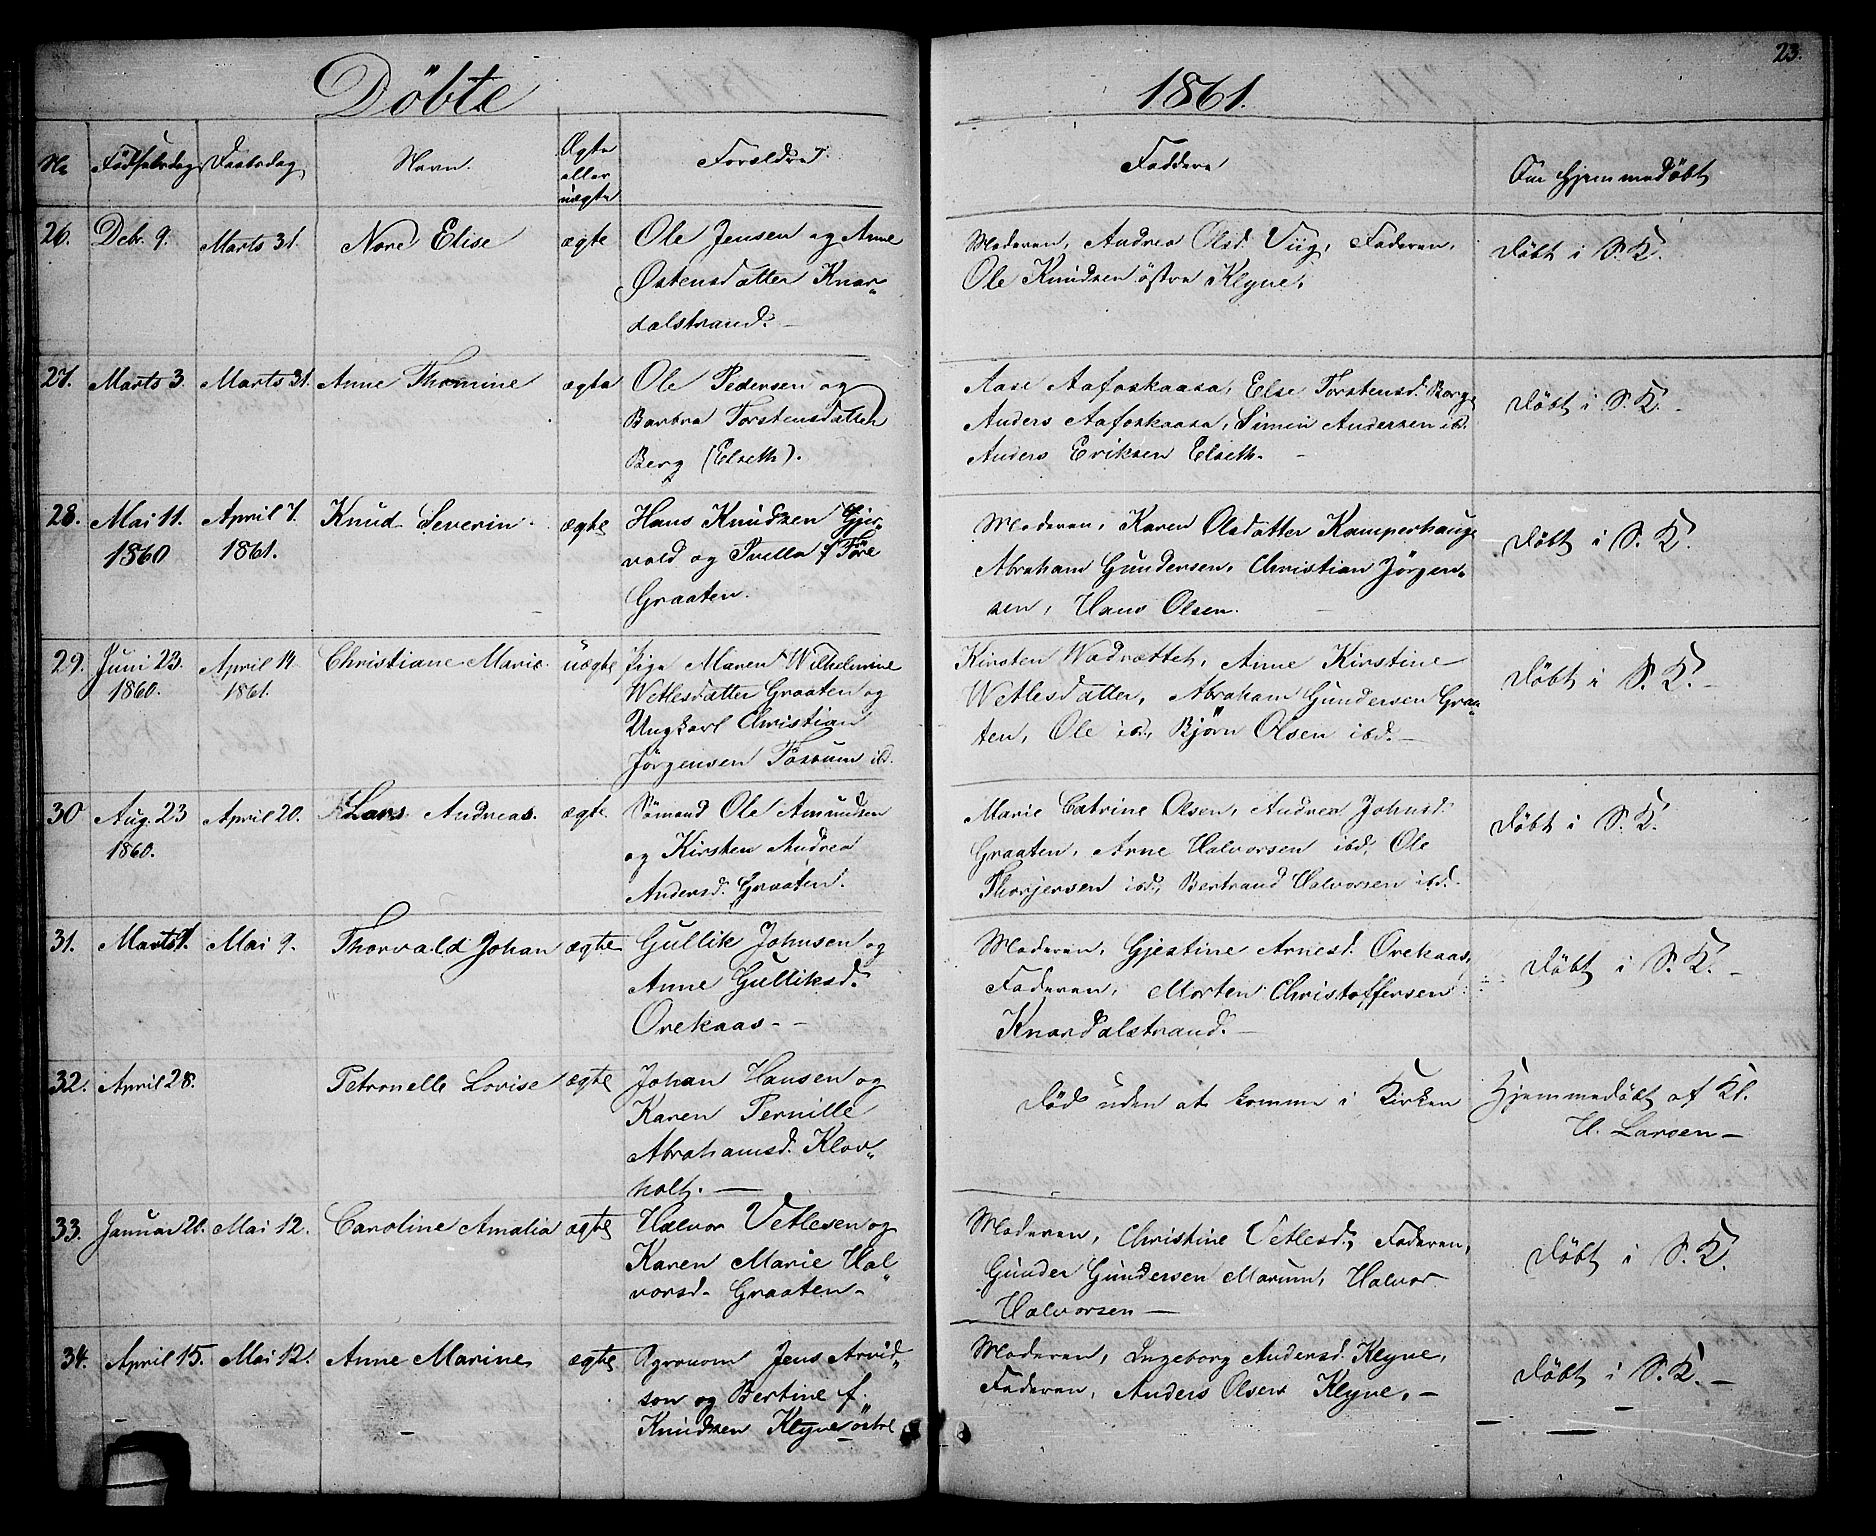 23.
Döbte 1861.
No Födselsdag Daabsdag Navn. Ægte eller uægte Forældre. Faddere Om Hjemmedöbt
26. Debr. 9. Marts 31. Elise ægte
Ole Jensen og Anne
Østensdatter Knar-
dalstrand.
Moderen, Andrea Olsd. Viig, Faderen,
Ole Knudsen östre Klyve.
Döbt i S. K.
27. Marts 3. Marts 31. Anne Thomine ægte
Ole Pedersen og
Barbra Torstensdatter
Berg (Elseth).
Aase Aafoskaasa, Else Torstensd. Berg
Anders Aafoskaasa, Simen Andersen ibd.
Anders Eriksen Elseth.
Döbt i S. K.
28. Mai 11. 1860 April 7. 1861. Knud Severin. ægte
Hans Knudsen Gjer-
vold og f.
Graaten.
Moderen, Karen Olsdatter Kamperhauge
Abraham Gundersen, Christian Jörgen-
sen, Hans Olsen.
Döbt i S. K.
29. Juni 23. 1860. April 14. 1861. Christiane Marie uægte
Pige Maren Wilhelmine
Wetlesdatter Graaten og
Ungkarl Christian
Jörgensen Fossum ibd.
Kirsten, Anne Kirstine
Wetlesdatter, Abraham Gundersen Graa-
ten, Ole ibd., Bjørn Olsen ibd.
Döbt i S. K. -
30 Aug. 23 1860. April 20. Lars Andreas. ægte
Sömand Ole Amundsen
og Kirsten Andrea
Andersd. Graaten.
Marie Catrine Olsen, Andrea Johnsd.
Graaten, Arne Halvorsen ibd, Ole
Thorjersen ibd, Bertrand Halvorsen ibd.
Döbt i S. K.
31. Marts Mai 9. Thorvald Johan ægte
Gullik Johnsen og
Anne Gulliksd.
Orekaas -
Moderen, Gjestine Arnesd. Orekaas,
Faderen, Morten Christoffersen
Knardalstrand. -
Döbt i S. K. -
32. April 28. Petronelle Lovise ægte
Johan Hansen og
Karen Pernille
Abrahamsd. Klov-
holt. -
Död uden at komme i Kirken
Hjemmedöbt af Kl.
H. Larsen -
33. Januar Mai 12. Caroline Amalia ægte
Halvor Vetlesen og
Karen Marie Hal-
vorsd. Graaten -
Moderen, Christine Vetlesd., Faderen,
Gunder Gundersen Marum, Halvor
Halvorsen -
Döbt i S. K.
34. April 15. Mai 12. Anne Marine ægte
Agronom Jens Arvid-
son og Bertine f.
Knudsen Klyve östre
Moderen, Ingeborg Andersd. Klyve,
Faderen, Anders Olsen Klyve. -
Döbt i S. K. -